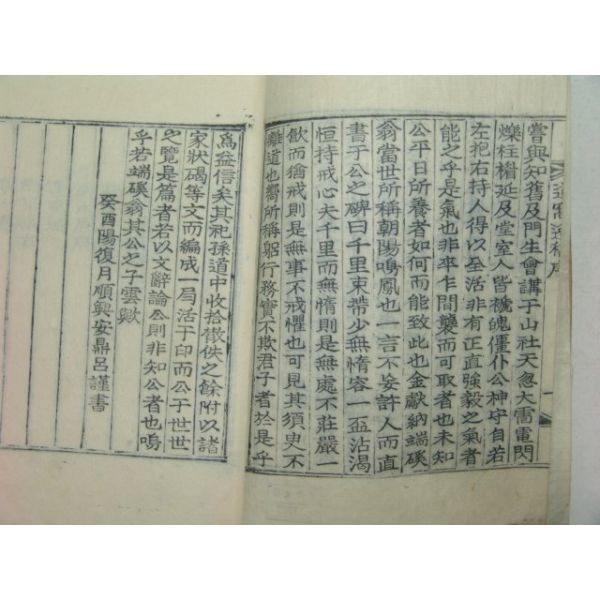 嘗與知舊及門生會講于山社天忽大雷電閃
爍柱檐延及堂室人皆褫魄僵仆公神守自若
左抱右持人得以全活非有正直強毅之氣者
能之乎是氣也非卒乍間襲而可取者也未知
公平日所養者如何而能致此也金獻納端磎
翁當世所稱朝陽鳴鳳也一言不妄許人而直
書于公之碑曰千里束帶少無惰容一盃沾渴
恒持戒心夫千里而無惰則是無處不莊嚴一
飮而猶戒則是無事不戒懼也可見其須臾不
離道也嚮所稱躬行務實不欺君子者於是乎
爲益信矣其祀孫道中收拾散佚之餘附以諸
家狀碣等文而編成一局活于印而公于世世
之覽是篇者若以文辭論公則非知公者也嗚
乎若端磎翁其公之子雲歟
癸酉陽復月順興安鼎呂謹書